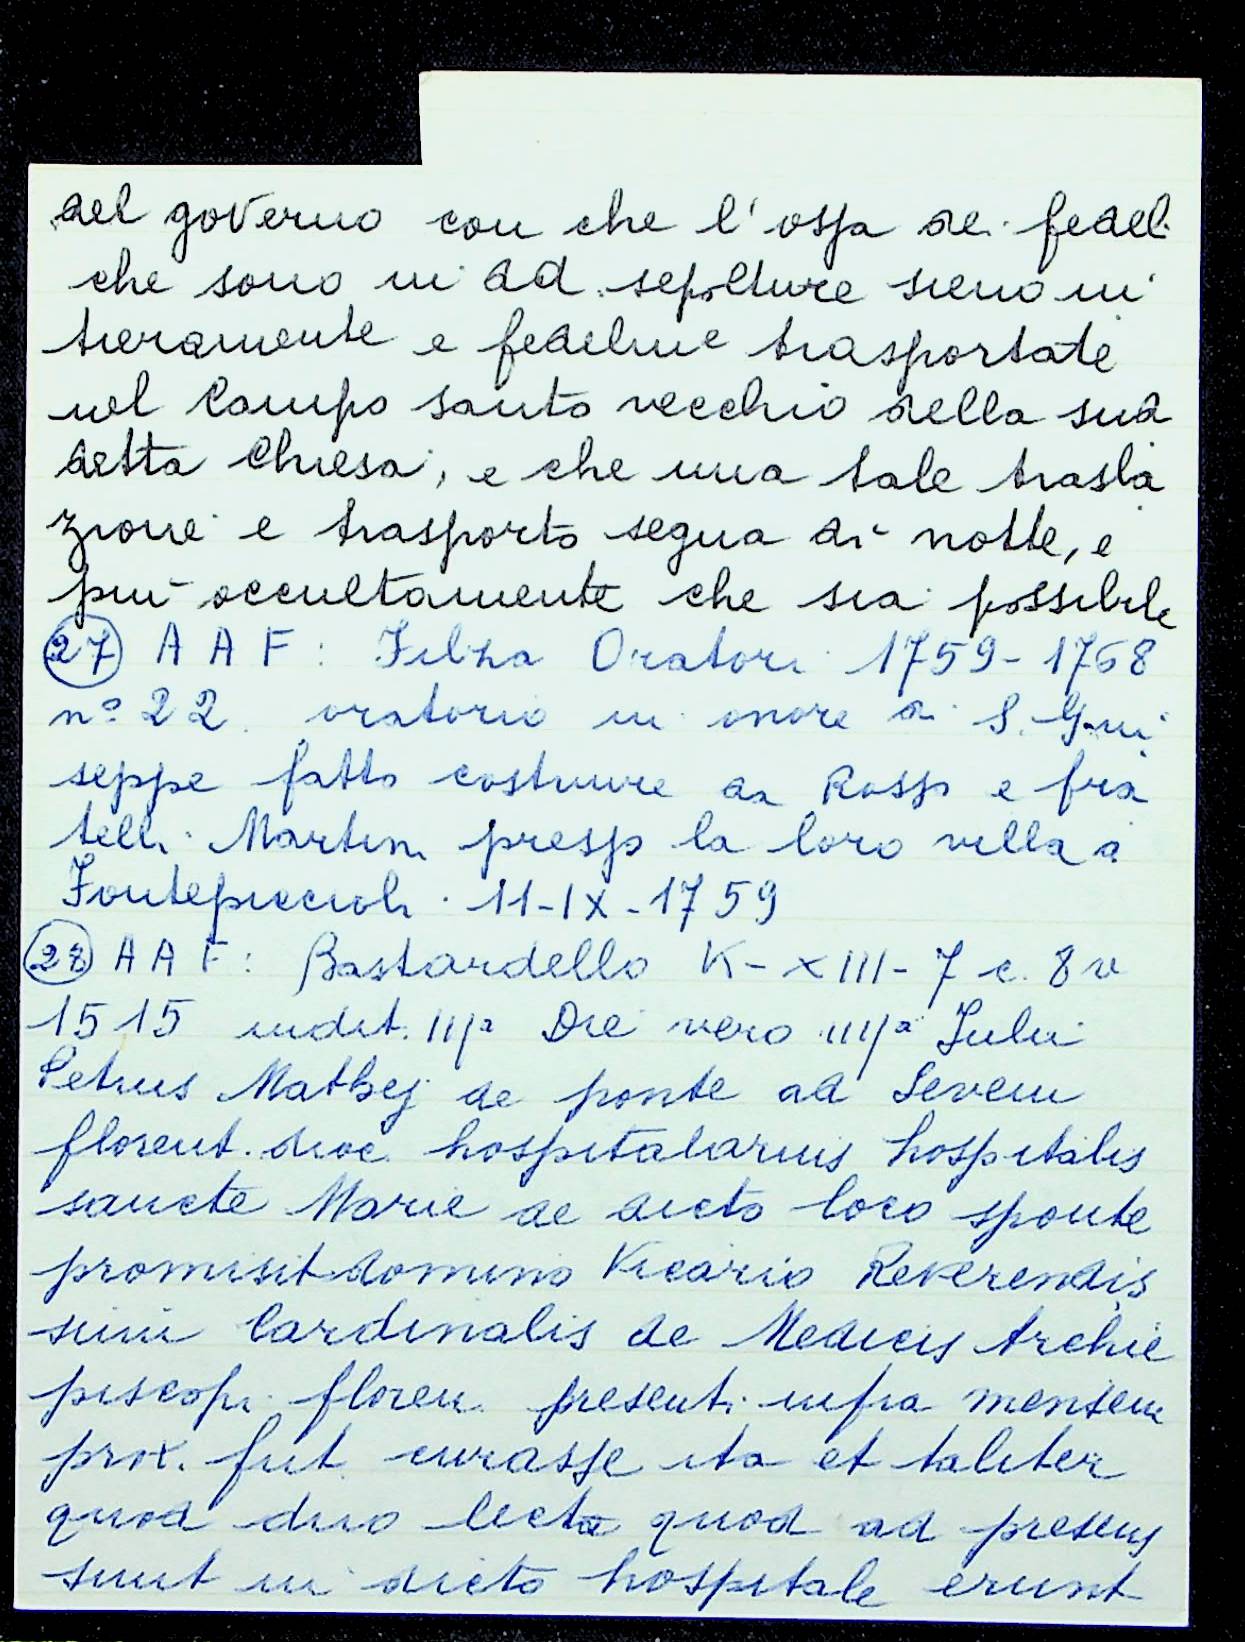 del governo con che l'ossa dei fedeli
che sono in dd. sepolture sieno in
tieramente e fedelme trasportate
nel Campo santo vecchio della sud
detta Chiesa, e che una tale trasla
zione e trasporto segua di notte, e
più occultamente che sia possibile
27 A A F: Filza Oratori 1759-1768
n° 22 oratorio in onore di S. Giu
seppe fatto costruire da Rosso e fra
telli Martini presso la loro villa a
Fontepiccioli. 11-IX-1759
28 A A F: Bastardello K-XIII-7 c. 8v
1515 indit. IIIa Die vero IIIIa Julii
Petrus Mathej de ponte ad Sevem
florent. dioc. hospitalarius hospitalis
sancte Marie de dicto loco sponte
promisit domino Vicario Reverendis
simi Cardinalis de Medicis Archie
piscopi floren. presenti infra mensem
prox. fut. curasse ita et taliter
quod duo lecta quod ad presens
sunt in dicto hospitale erunt